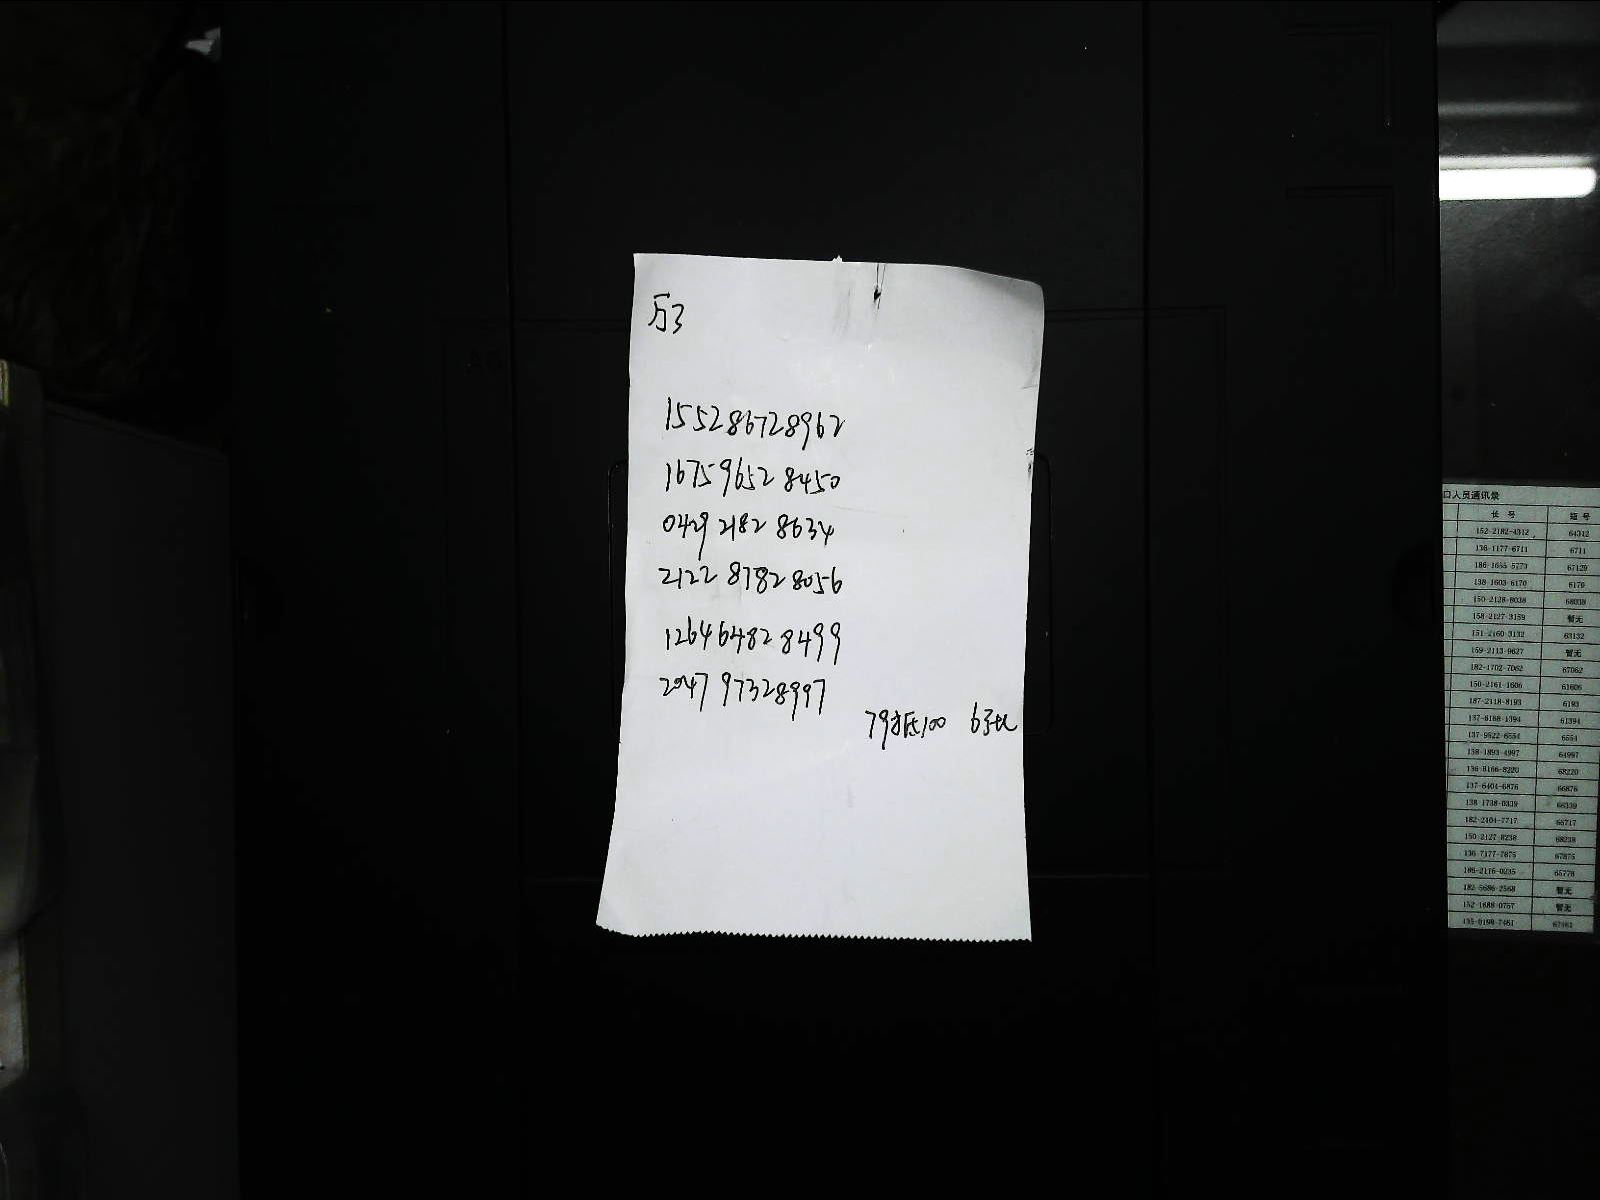 万3
155286728962
1675 9652 8450
0429 2182 8634
2122 8782 8056
126464828499
2047 97328997
79抵100 6张
口人员通讯录
长 号 短 号
152-2182-4312 64312
136-1177-6711 6711
186-1655-5773 67129
138-1603-6170 6170
150-2128-8038 68038
158-2127-3159 暂无
151-2160-3132 63132
159-2113-9627 暂无
182-1702-7062 67062
150-2161-1606 61606
187-2118-8193 6193
137-6188-1394 61394
137-9522-6554 6554
138-1893-4997 64997
136-8166-8220 68220
137-6404-6876 66876
138-1738-0339 66339
182-2104-7717 65717
150-2127-8238 68238
136-7177-7875 67875
186-2116-0235 65778
182-5686-2568 暂无
152-1688-0757 暂无
135-0198-7461 67461